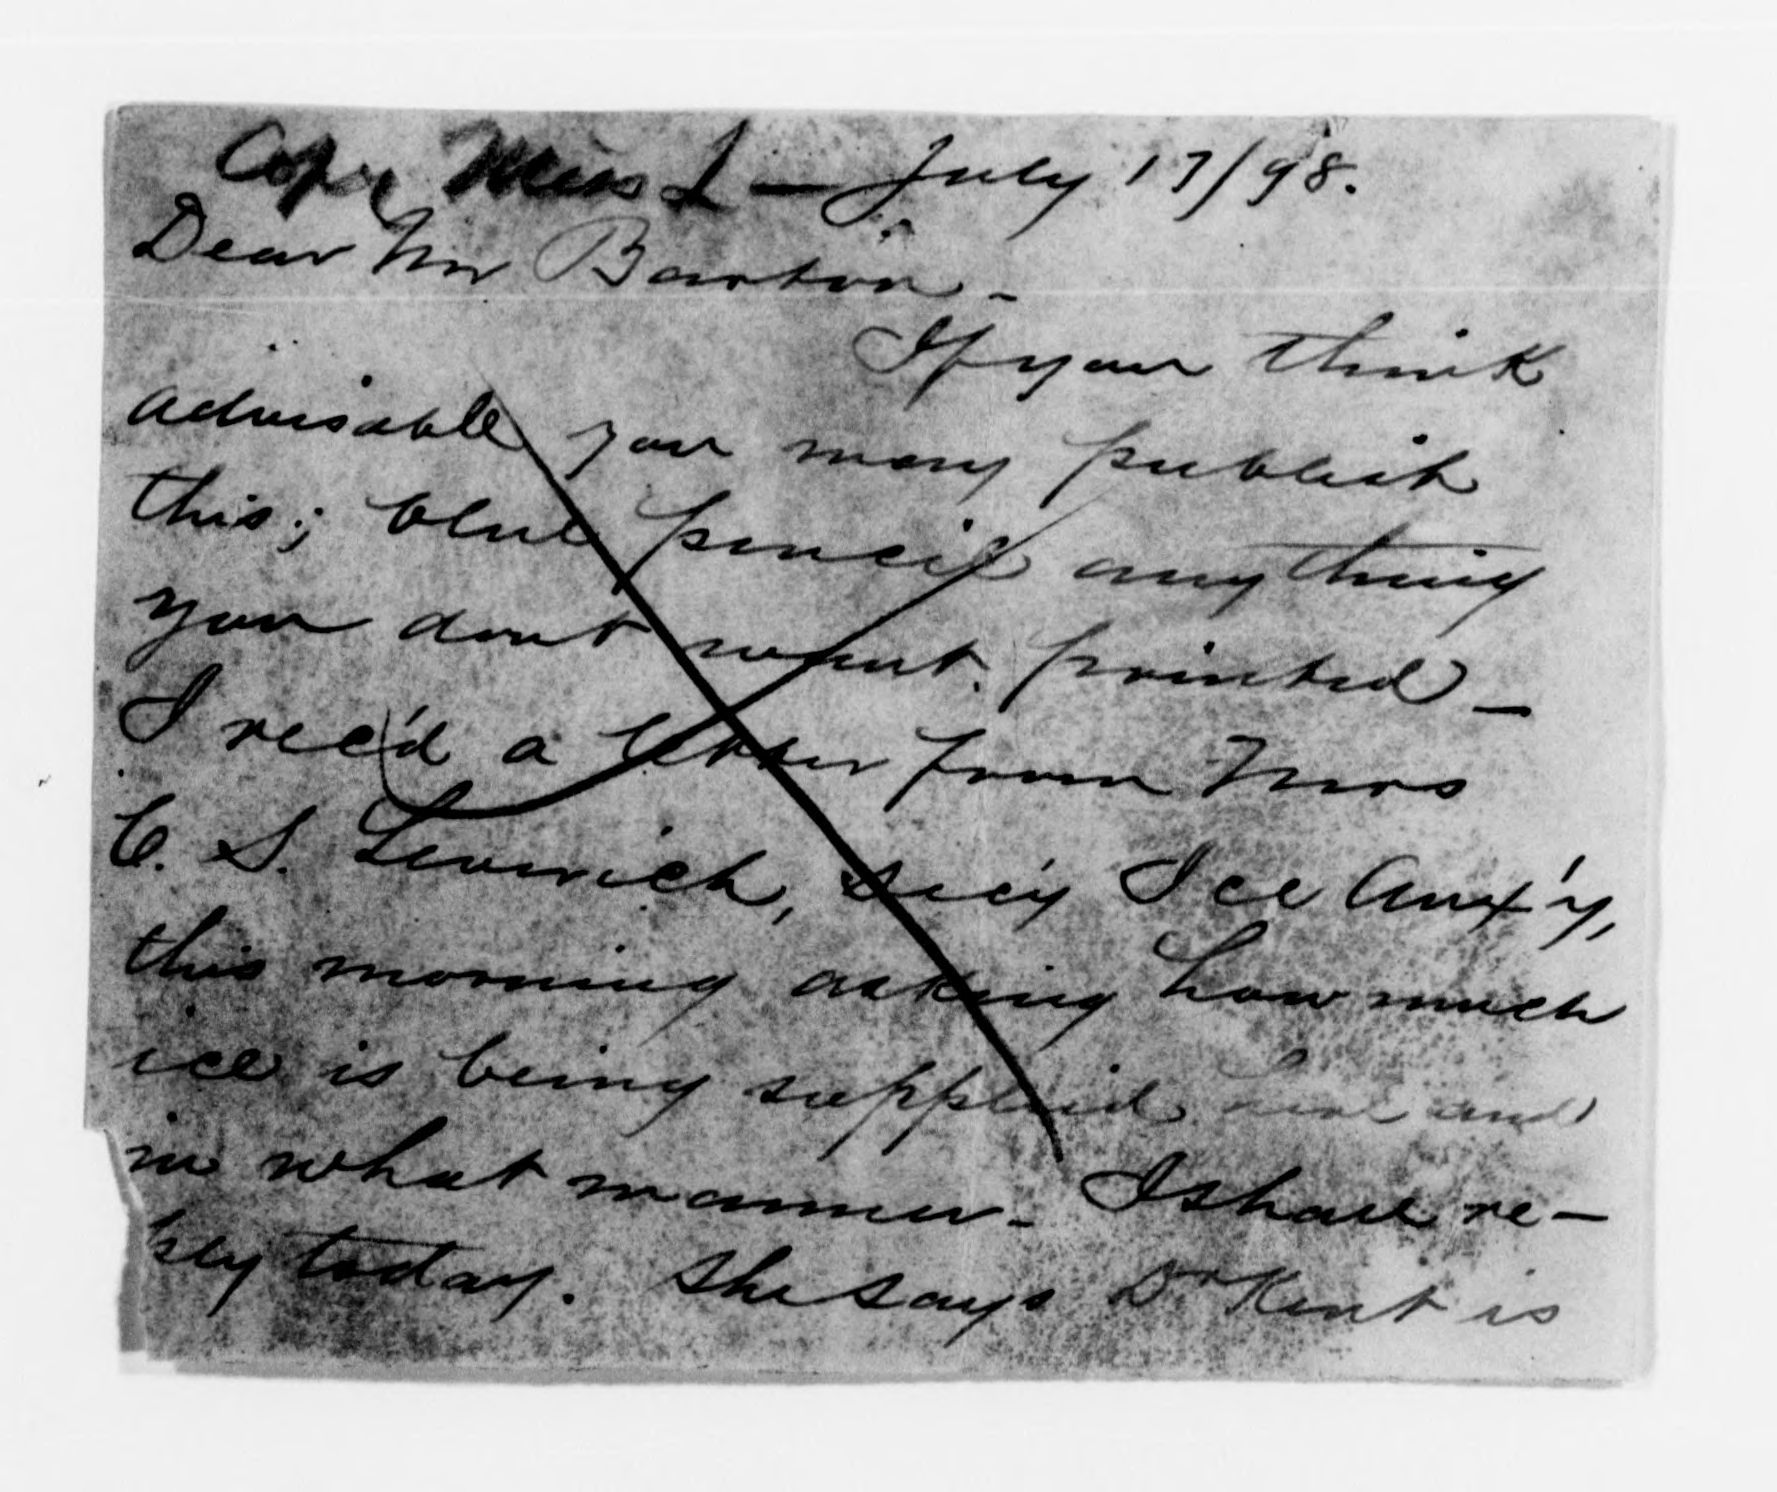 Copy Miss L — July 17/98.
Dear Mr Barton -
If you think
advisable you may publish
this; blue pencil anything
you dont want printed —
I rec'd a letter from Mrs
C. S. Leverich, Sec'y Ice Aux'y,
this morning asking how much
ice is being supplied here and
in what manner - I shall re-
ply today. She says Dr Kent is